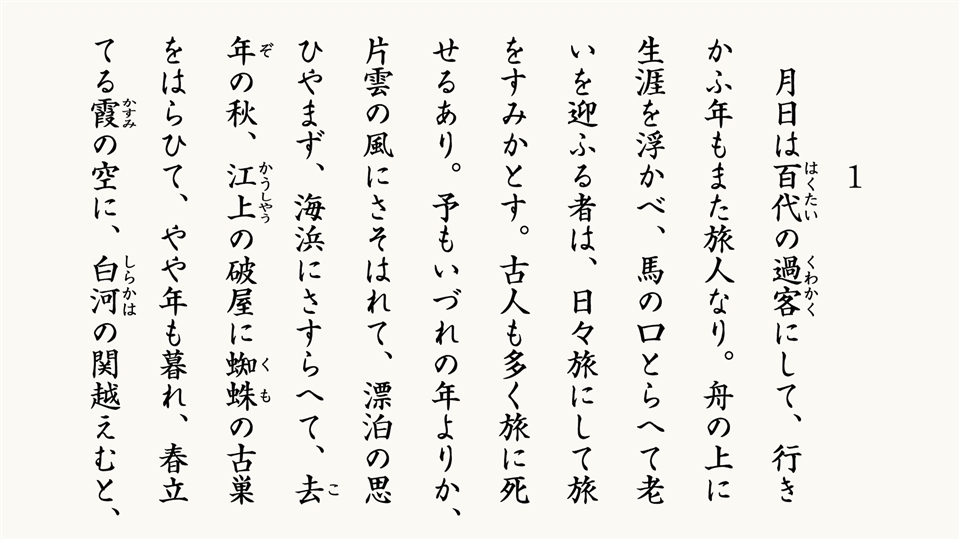 1
月日は百代の過客にして、行き
かふ年もまた旅人なり。舟の上に
生涯を浮かべ、馬の口とらへて老
いを迎ふる者は、日々旅にして旅
をすみかとす。古人も多く旅に死
せるあり。予もいづれの年よりか、
片雲の風にさそはれて、漂泊の思
ひやまず、海浜にさすらへて、去
年の秋、江上の破屋に蜘蛛の古巣
をはらひて、やや年も暮れ、春立
てる霞の空に、白河の関越えむと、
はくたい
くわかく
こ
ぞ
かうしやう
くも
かすみ
しらかは